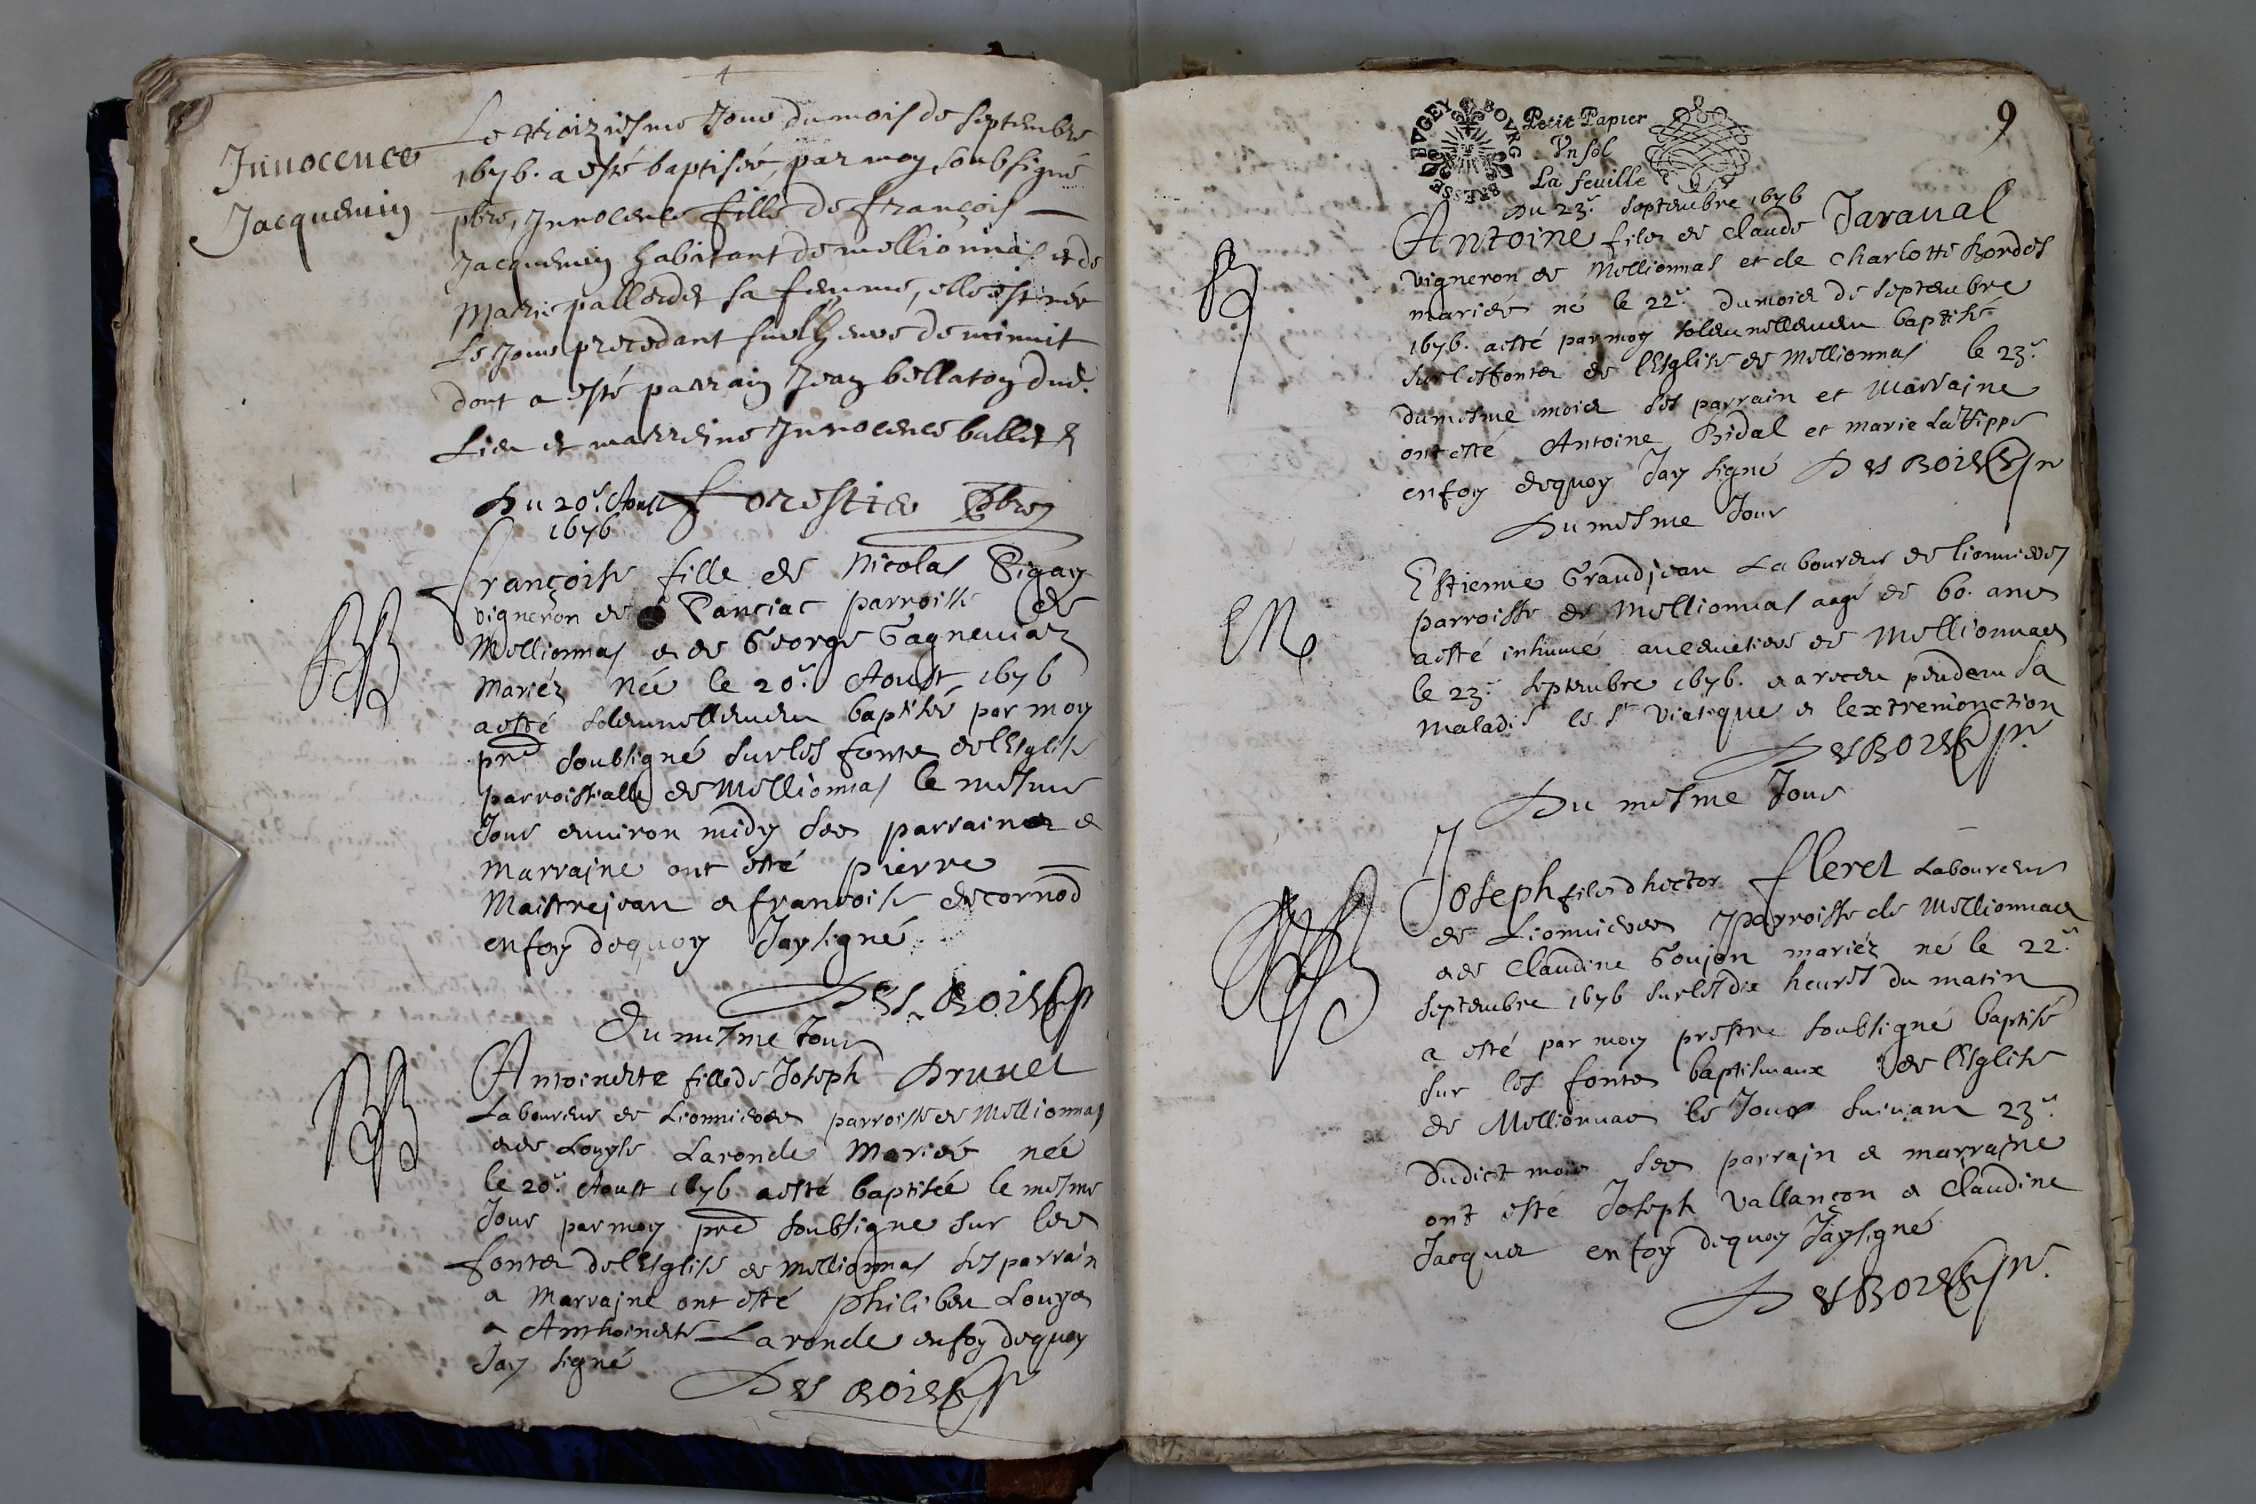 Innocence
Jacquemin
Le troiziesme Jour du mois de septembre
1676. a esté baptisée, par moy soubsigné
pbre, Innocence fille de françois
Jacquemin habitant de mellionnas et de
Marie palleder sa femme, elle est née
Le Jour precedant sur l'heure de minuit
dont a esté parrain Jean bellaton dud.
Lieu et marreine Innocence ballet
Du 20.e Aoust forestier pbre
1676
françoise fille de Nicolas Pigay
vigneron de Panciac parroisse de
Mellionnas & de George Gagneur
mariéz Née le 20.e Aoust 1676
a esté solennellement baptisée par moy
pre soubsigné sur les fonts de lEsglise
parroissialle de Mellionnas le mesme
Jour environ midy ses parrain &
marraine ont esté pierre
Maistrejean & francoise decornod
en foy dequoy Jay signé
DesBois pr
Du mesme Jour
Antoinette fille de Joseph Druuet
Laboureur de Lionnieres parroisse de Mellionnas
& de Louyse Laronde Mariés née
le 20.e Aoust 1676 a esté baptisée le mesme
Jour par moy pre soubsigne sur les
fonts de lEsglise de mellionnas ses parrain
& Marraine ont esté philibert Louys
& Anthoinette Laronde en foy dequoy
Jay signé
DesBois pr
9
BRESSE BVGEY BOVRG
Petit Papier
Vn sol
La feuille
Du 23.e Septembre 1676
Antoine fils de claude Jaraual
vigneron de Mellionnas et de charlotte Bordes
mariés né le 22.e du mois de septembre
1676. a esté par moy solennellement baptisé
sur les fonts de lEsglise de Mellionnas le 23.e
du mesme mois ses parrain et Marraine
ont esté Antoine Bidal et marie
en foy dequoy Jay signé DesBois pr
Du mesme Jour
Estienne Grandjean Laboureur de lionnieres
parroisse de Mellionnas aagé de 60. ans
a esté inhumé au cemetiere de Mellionnas
le 23.e septembre 1676. & a receu pendant sa
maladie le st Viatique & lextremonction
DesBois pr.
Du mesme Jour
Joseph fils d'hector fleret Laboureur
de Lionnieres parroisse de Mellionnas
& de Claudine Goujon mariéz né le 22.e
septembre 1676 sur les dix heures du matin
a esté par moy prestre soubsigné baptisé
sur les fonts baptismaux de lEsglise
de Mellionnas le Jour suivant 23.e
dudict mois ses parrain & marraine
ont esté Joseph Vallançon & Claudine
Jacquet en foy dequoy Jay signé
DesBois pr.